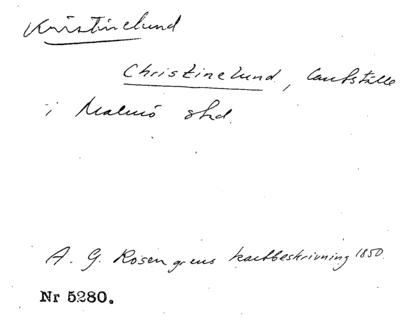 Kristinelund
Christinelund, lantställe
i Malmö skd.
A. G. Rosengrens kartbeskrivning 1850.
Nr 5280.